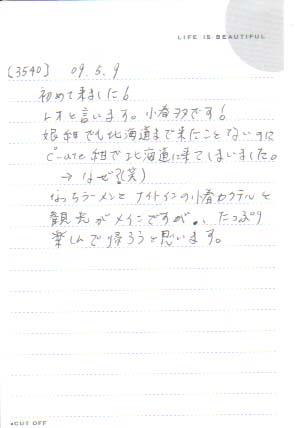 LIFE IS BEAUTIFUL
[3540] 09.5.9
初めて来ました!
レオと言います。小春ヲタです!
娘紺でも北海道まで来たことないのに
℃-ute紺で北海道に来てしまいました。
→なぜ?(笑)
なっちラーメンとナイトインの小春カクテルと
観光がメインですが、、たっぷり
楽しんで帰ろうと思います。
CUT OFF